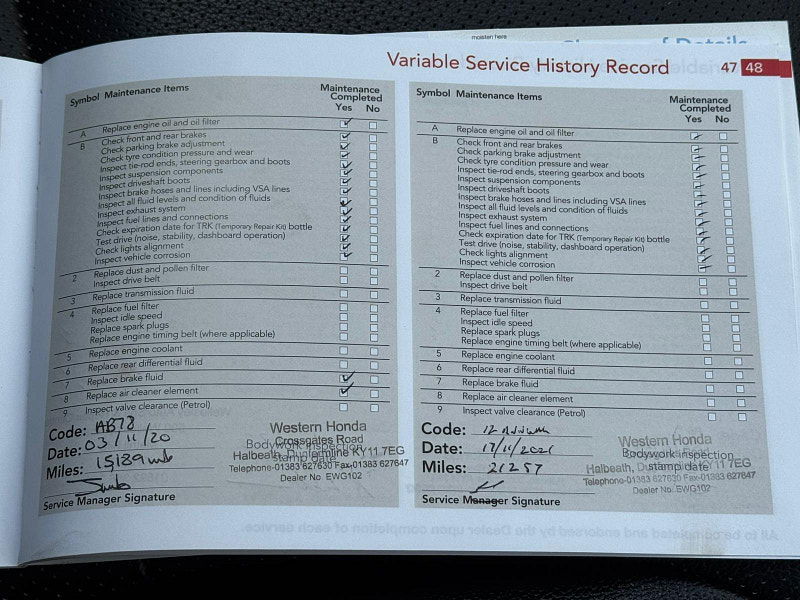 moisten here
Variable Service History Record 47 48
Symbol Maintenance Items Maintenance Completed Yes No
A Replace engine oil and oil filter
B Check front and rear brakes
Check parking brake adjustment
Check tyre condition pressure and wear
Inspect tie-rod ends, steering gearbox and boots
Inspect suspension components
Inspect driveshaft boots
Inspect brake hoses and lines including VSA lines
Inspect all fluid levels and condition of fluids
Inspect exhaust system
Inspect fuel lines and connections
Check expiration date for TRK (Temporary Repair Kit) bottle
Test drive (noise, stability, dashboard operation)
Check lights alignment
Inspect vehicle corrosion
2 Replace dust and pollen filter
Inspect drive belt
3 Replace transmission fluid
4 Replace fuel filter
Inspect idle speed
Replace spark plugs
Replace engine timing belt (where applicable)
5 Replace engine coolant
6 Replace rear differential fluid
7 Replace brake fluid
8 Replace air cleaner element
9 Inspect valve clearance (Petrol)
Code: AB78
Date: 03/11/20
Miles: 15189 mls
Service Manager Signature
Western Honda
Crossgates Road
Bodywork inspection
Halbeath, Dunfermline KY11 7EG
stamp date
Telephone-01383 627630 Fax-01383 627647
Dealer No EWG102
Symbol Maintenance Items Maintenance Completed Yes No
A Replace engine oil and oil filter
B Check front and rear brakes
Check parking brake adjustment
Check tyre condition pressure and wear
Inspect tie-rod ends, steering gearbox and boots
Inspect suspension components
Inspect driveshaft boots
Inspect brake hoses and lines including VSA lines
Inspect all fluid levels and condition of fluids
Inspect exhaust system
Inspect fuel lines and connections
Check expiration date for TRK (Temporary Repair Kit) bottle
Test drive (noise, stability, dashboard operation)
Check lights alignment
Inspect vehicle corrosion
2 Replace dust and pollen filter
Inspect drive belt
3 Replace transmission fluid
4 Replace fuel filter
Inspect idle speed
Replace spark plugs
Replace engine timing belt (where applicable)
5 Replace engine coolant
6 Replace rear differential fluid
7 Replace brake fluid
8 Replace air cleaner element
9 Inspect valve clearance (Petrol)
Code: 12
Date: 17/11/2021
Miles: 21257
Service Manager Signature
Western Honda
Bodywork inspection
Halbeath, KY11 7EG
stamp date
Telephone-01383 627630 Fax-01383 627647
Dealer No: EWG102